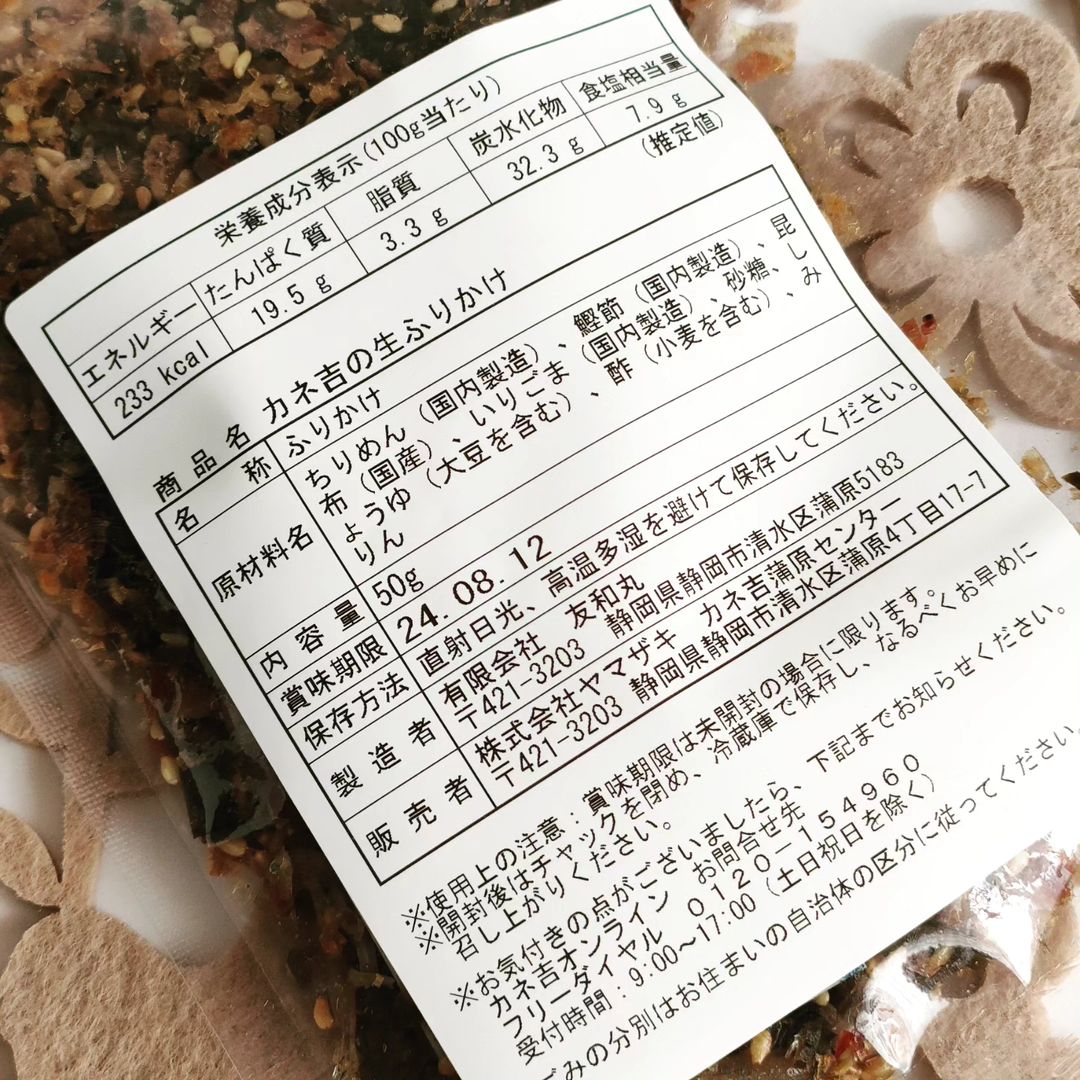 栄養成分表示(100g当たり)
エネルギー たんぱく質 脂質 炭水化物 食塩相当量
233 kcal 19.5 g 3.3 g 32.3 g 7.9 g
(推定値)
商品名 カネ吉の生ふりかけ
名称 ふりかけ
原材料名 ちりめん(国内製造)、鰹節(国内製造)、昆
布(国産)、いりごま(国内製造)、砂糖、し
ょうゆ(大豆を含む)、酢(小麦を含む)、み
りん
内容量 50g
賞味期限 24.08.12
保存方法 直射日光、高温多湿を避けて保存してください。
製造者 有限会社 友和丸
〒421-3203 静岡県静岡市清水区蒲原5183
販売者 株式会社ヤマザキ カネ吉蒲原センター
〒421-3203 静岡県静岡市清水区蒲原4丁目17-7
※使用上の注意:賞味期限は未開封の場合に限ります。
※開封後はチャックを閉め、冷蔵庫で保存し、なるべくお早めに
召し上がりください。
※お気付きの点がございましたら、下記までお知らせください。
カネ吉オンライン お問合せ先
フリーダイヤル 0120-154960
受付時間:9:00~17:00(土日祝日を除く)
ごみの分別はお住まいの自治体の区分に従ってください。